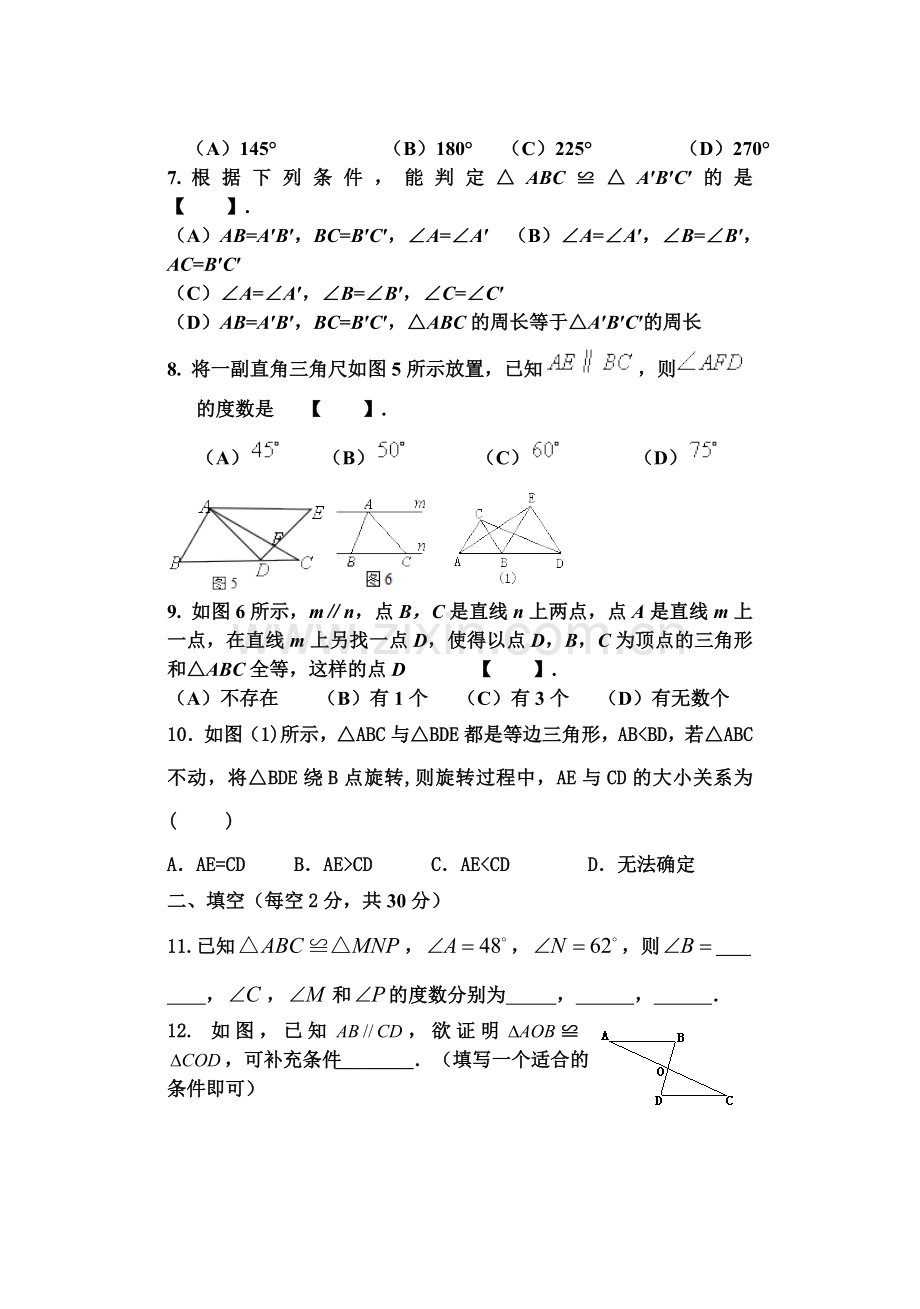 （A）145° （B）180° （C）225° （D）270°
7. 根据下列条件，能判定△ABC≌△A′B′C′的是
【 】．
（A）AB=A′B′，BC=B′C′，∠A=∠A′ （B）∠A=∠A′，∠B=∠B′，
AC=B′C′
（C）∠A=∠A′，∠B=∠B′，∠C=∠C′
（D）AB=A′B′，BC=B′C′，△ABC的周长等于△A′B′C′的周长
8. 将一副直角三角尺如图5所示放置，已知AE∥BC，则∠AFD
的度数是 【 】．
（A）45° （B）50° （C）60° （D）75°
A E F B D C 图5
A m B C n 图6
E C A B D (1)
9. 如图6所示，m∥n，点B，C是直线n上两点，点A是直线m上
一点，在直线m上另找一点D，使得以点D，B，C为顶点的三角形
和△ABC全等，这样的点D 【 】．
（A）不存在 （B）有1个 （C）有3个 （D）有无数个
10．如图(1)所示，△ABC与△BDE都是等边三角形，AB<BD，若△ABC
不动，将△BDE绕B点旋转,则旋转过程中，AE与CD的大小关系为
( )
A．AE=CD B．AE>CD C．AE<CD D．无法确定
二、填空（每空2分，共30分）
11.已知△ABC≌△MNP，∠A=48°，∠N=62°，则∠B=____
____，∠C，∠M和∠P的度数分别为_____，______，______．
12. 如图，已知AB//CD，欲证明ΔAOB≌
ΔCOD，可补充条件________．（填写一个适合的
条件即可）
A B O D C
www.zixin.com.cn